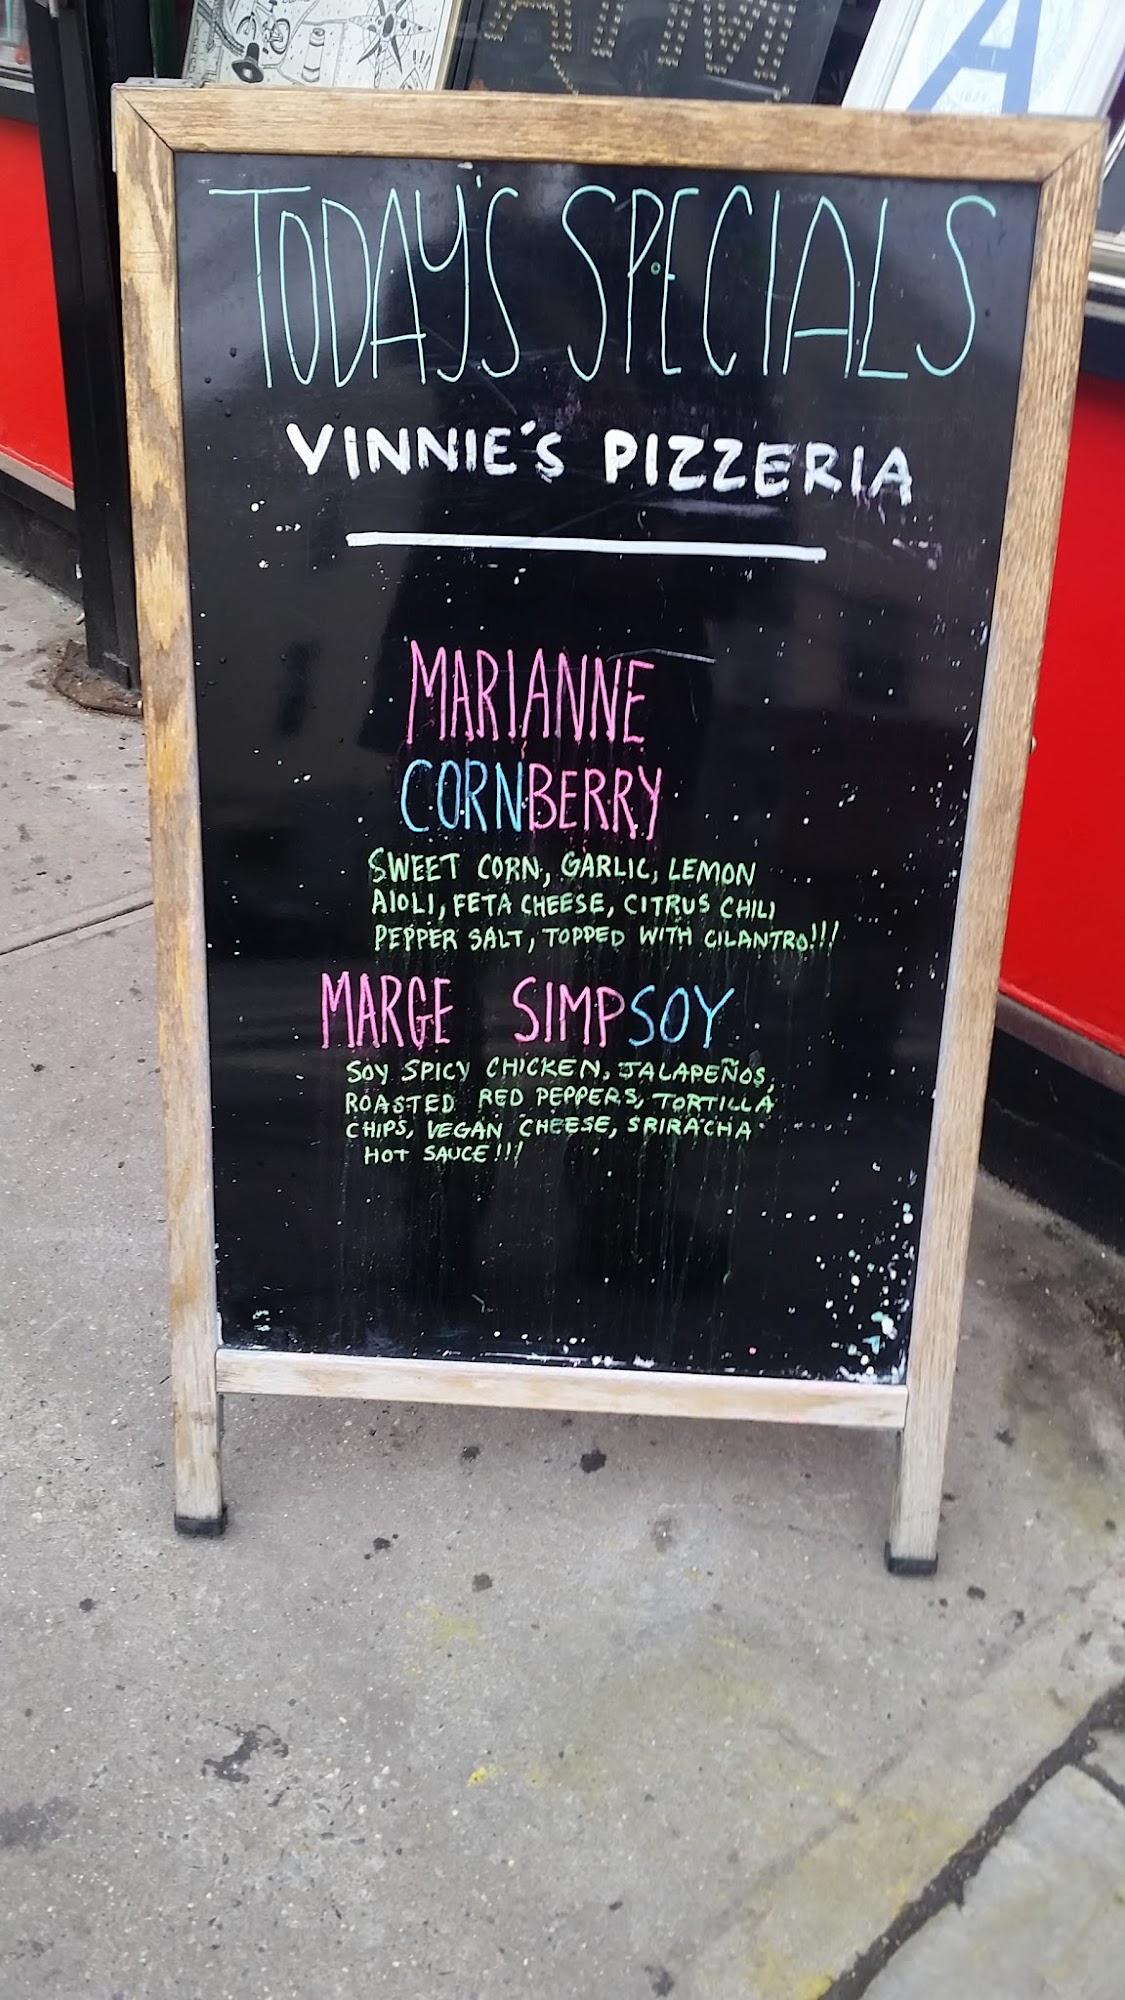 ATM
A
TODAY'S SPECIALS
VINNIE'S PIZZERIA
MARIANNE
CORNBERRY
SWEET CORN, GARLIC, LEMON
AIOLI, FETA CHEESE, CITRUS CHILI
PEPPER SALT, TOPPED WITH CILANTRO!!!
MARGE SIMPSOY
SOY SPICY CHICKEN, JALAPEÑOS,
ROASTED RED PEPPERS, TORTILLA
CHIPS, VEGAN CHEESE, SRIRACHA
HOT SAUCE!!!